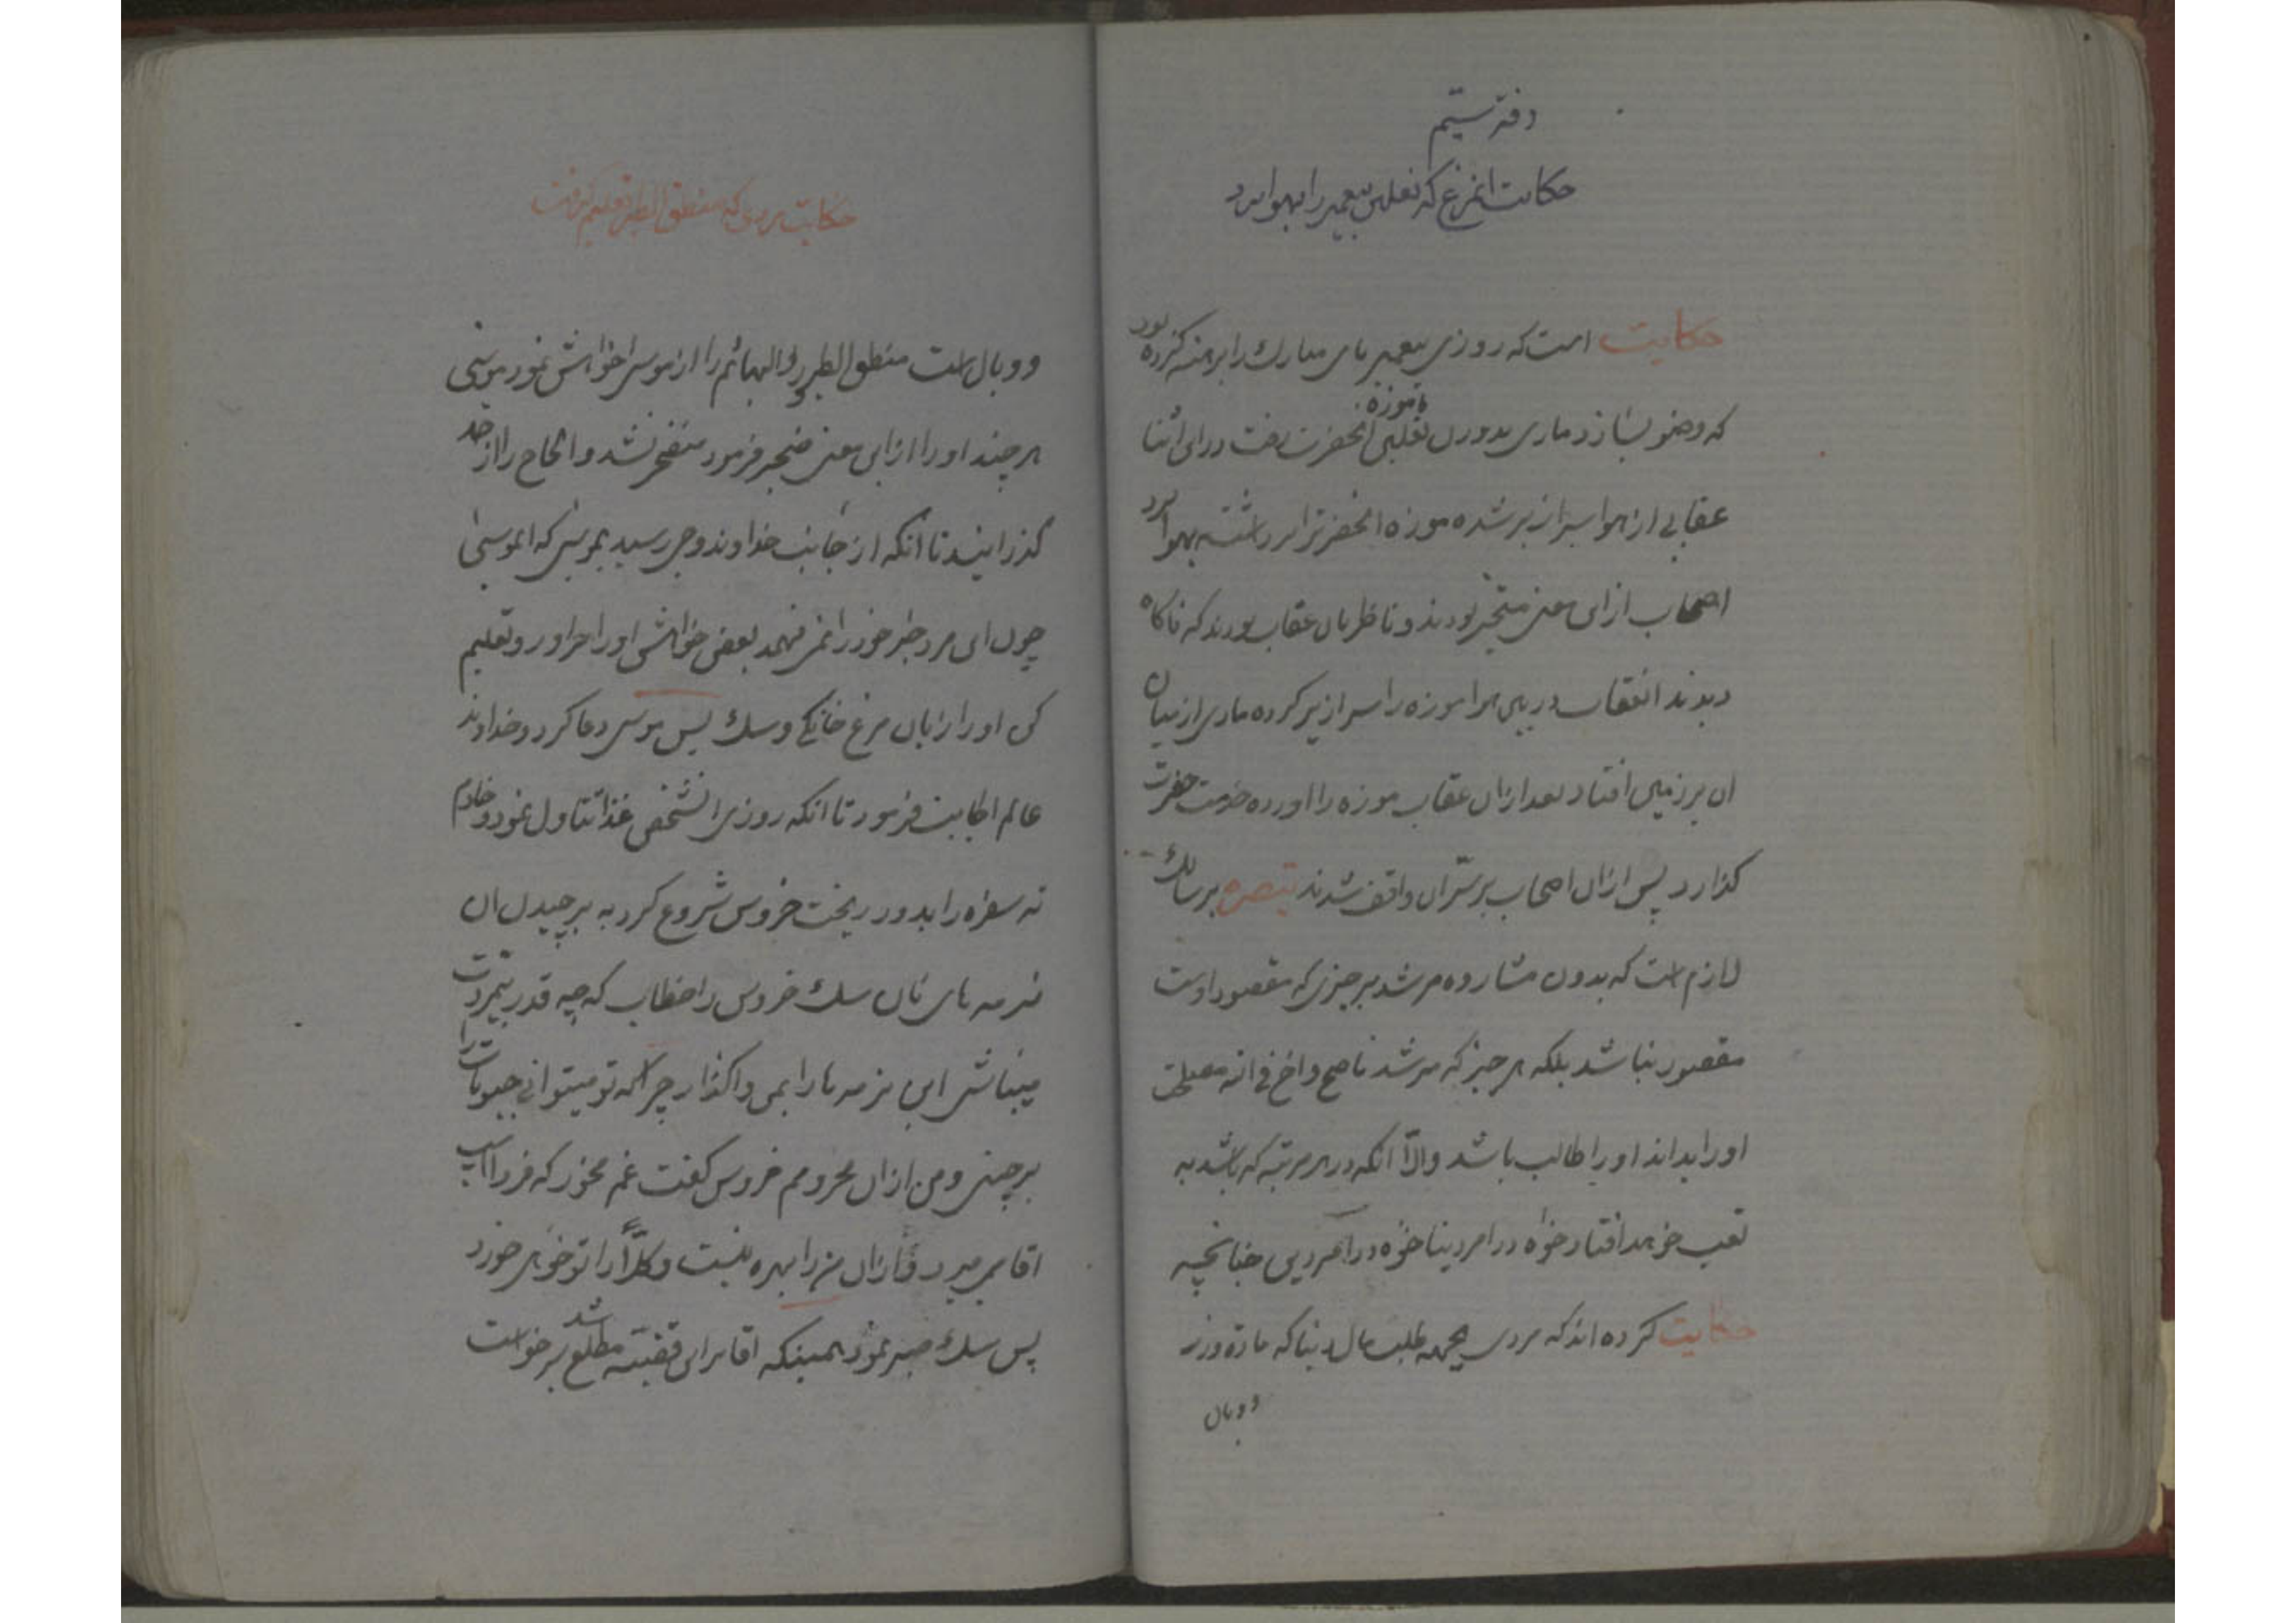 دفتر سیّم
حکایت انمرغ که نعلین پیغمبر را بهوا برد
حکایت است که روزی پیغمبر پای مبارك را برهنه کرده بود
که وضو بسازد ماری بدورن نعلین یا موزه انحضرت رفت در این اثنا
عقابی از هوا سرازیر شده موزه انحضرترا برداشته بهوا برد
اصحاب از این معنی متحیّر بودند و ناظر بان عقاب بودند که ناکاه
دیدند انعقاب در بین هوا موزه را سرازیر کرده ماری از میان
ان بر زمین افتاد بعد از ان عقاب موزه را اورده خدمت حضرت
کذارد پس از ان اصحاب بر سّر ان واقف شدند تبصره بر سالك
لازم است که بدون مشاروه مرشد بر چیزی که مقصود اوست
مقصود نباشد بلکه هر چیز که مرشد ناصح و اخ فی الله مصلحت
او را بداند او را طالب باشد والّا انکه در هر مرتبه که باشد به
تعب خواهد افتاد خواه در امر دنیا خواه در امر دین چنانچه
حکایت کرده اند که مردی بجهه طلب مال دنیا که مادّه وزر
و وبال
حکایت مردی که منطق الطیر تعلیم گرفت
و وبال است منطق الطیر و البهائم را از موسی خواهش نمود موسی
هر چند او را از این معنی ضجر فرمود منضجر نشد و الحاح را از حد
کذرانید تا انکه از جانب خداوند وحی رسید بموسی که ایموسی
چون این مرد خیر خود را نمی فهمد بعض خواهش او را براور و تعلیم
کن او را زبان مرغ خانکی و سك پس موسی دعا کرد و خداوند
عالم اجابت فرمود تا انکه روزی انشخص غذا تناول نمود و خادم
ته سفره را بدور ریخت خروس شروع کرد به برچیدن ان
نرمه های نان سك خروس را خطاب که چه قدر بیمروّت
میباشی این نرمه ها را بمن واکذار چرا که تو میتوانی حبوبات را
برچینی و من از ان محرومم خروس کفت غم مخور که فردا اسب
اقا میمیرد و از ان من را بهره نیست و کلّاً را تو خواهی خورد
پس سك صبر نمود همینکه اقا بر این قضیّه مطلع شد برخواست